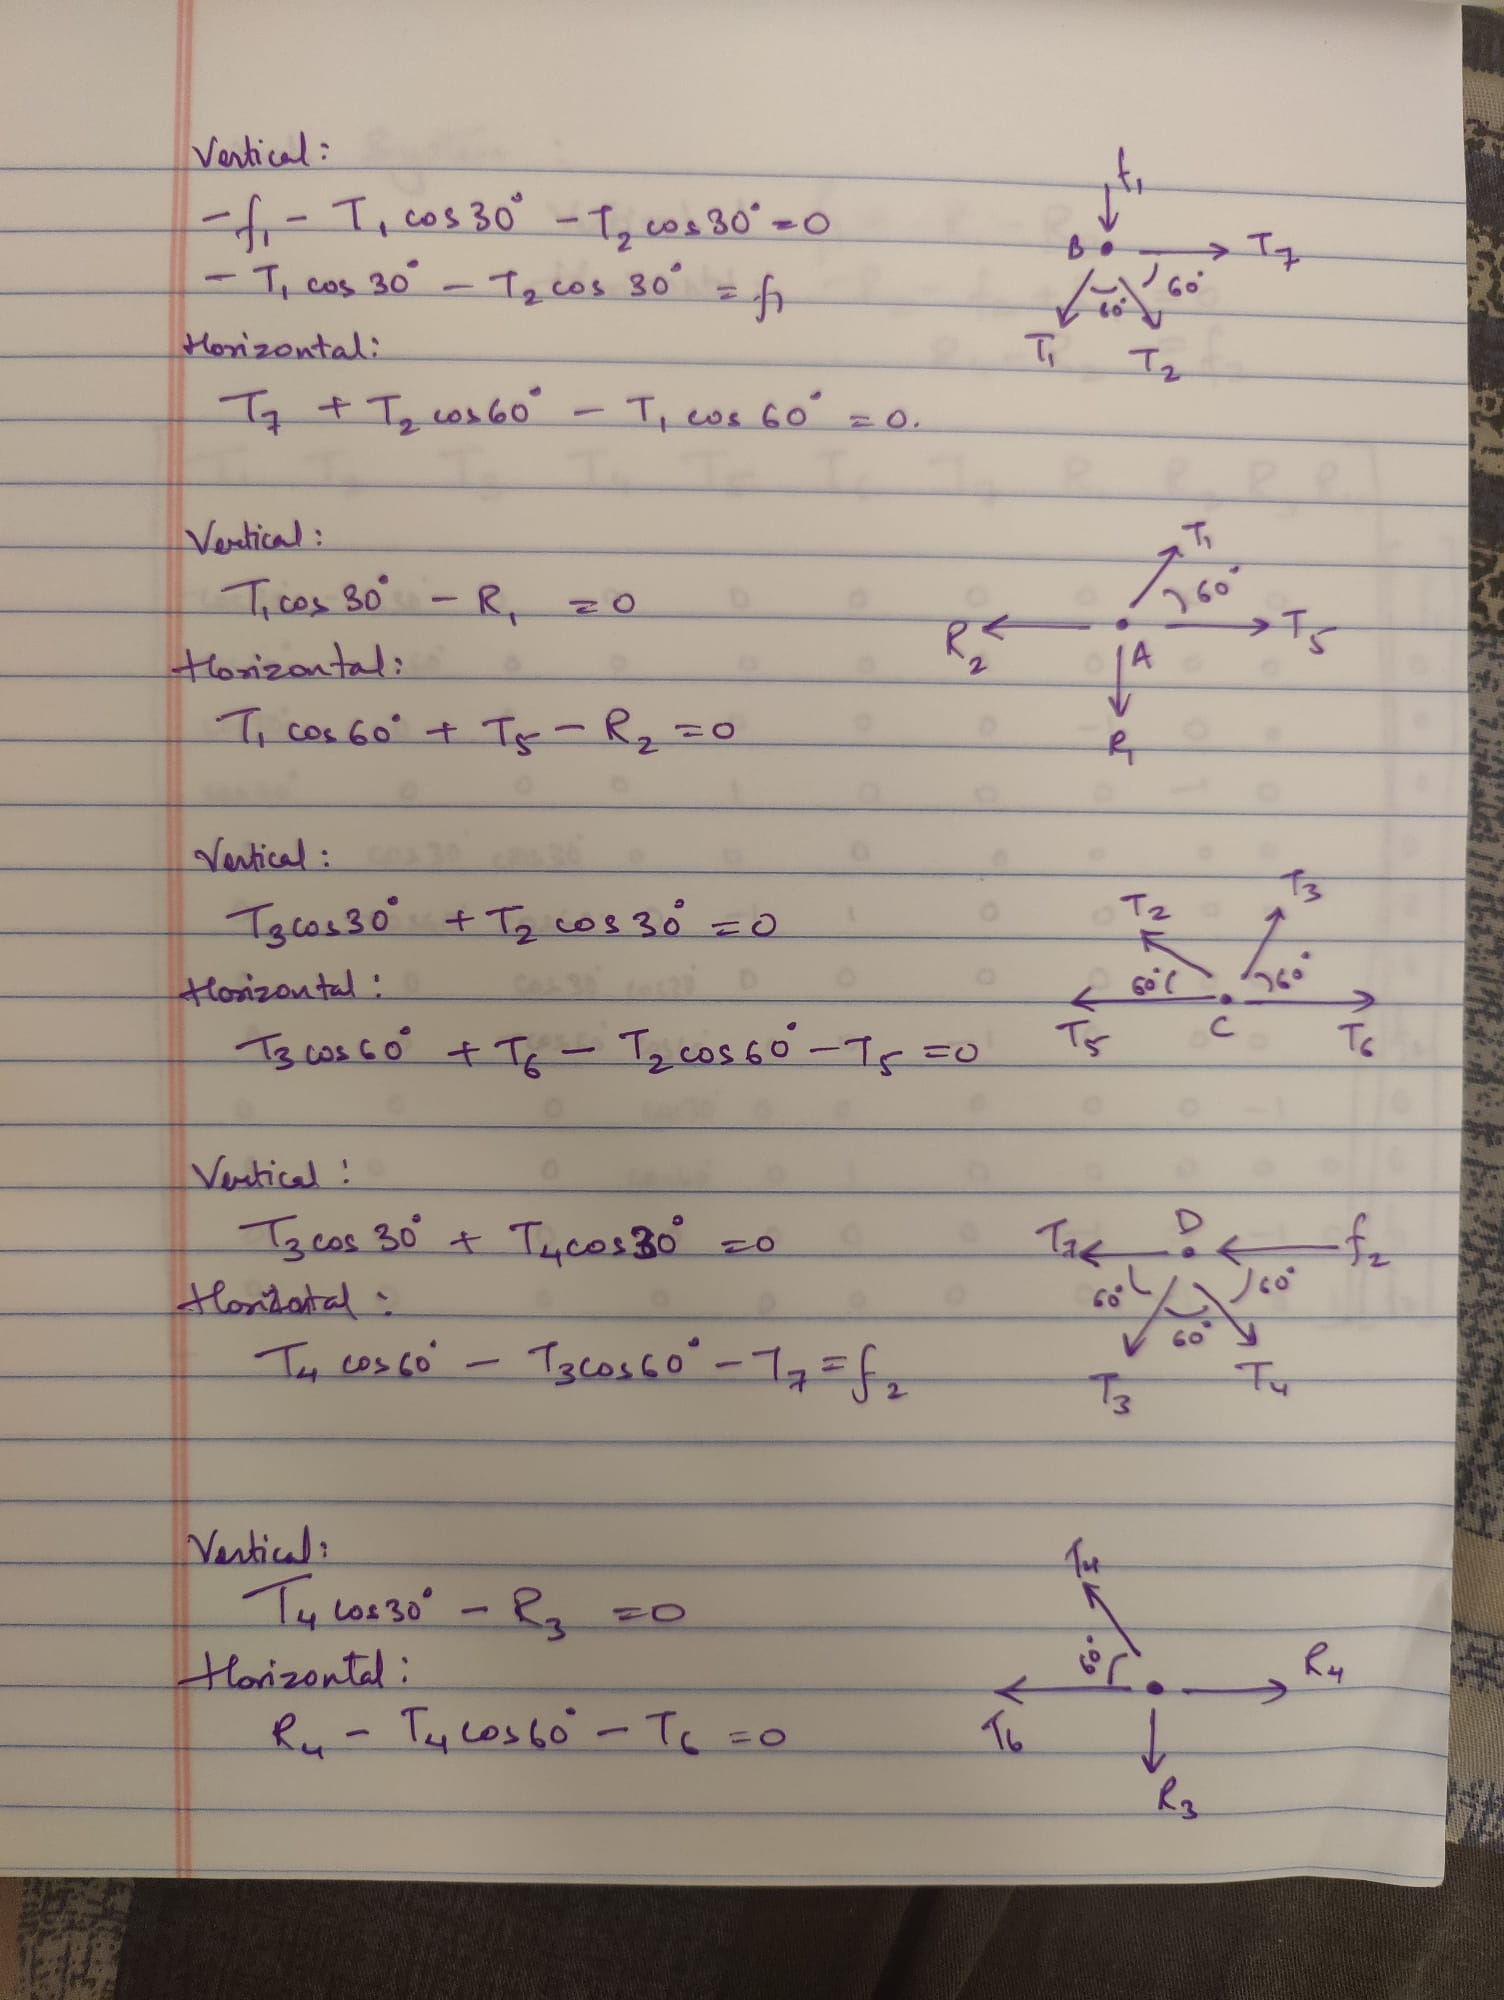 Vertical:
-f₁ - T₁ cos 30° - T₂ cos 30° = 0
- T₁ cos 30° - T₂ cos 30° = f₁
Horizontal:
T₇ + T₂ cos 60° - T₁ cos 60° = 0.
f₁
B
T₇
60°
60°
T₁
T₂
Vertical:
T₁ cos 30° - R₁ = 0
Horizontal:
T₁ cos 60° + T₅ - R₂ = 0
T₁
60°
R₂
T₅
A
R₁
Vertical:
T₃ cos 30° + T₂ cos 30° = 0
Horizontal:
T₃ cos 60° + T₆ - T₂ cos 60° - T₅ = 0
T₂
T₃
60°
60°
T₅
C
T₆
Vertical:
T₃ cos 30° + T₄ cos 30° = 0
Horizontal:
T₄ cos 60° - T₃ cos 60° - T₇ = f₂
T₇
D
f₂
60°
60°
60°
T₃
T₄
Vertical:
T₄ cos 30° - R₃ = 0
Horizontal:
R₄ - T₄ cos 60° - T₆ = 0
T₄
60°
R₄
T₆
R₃